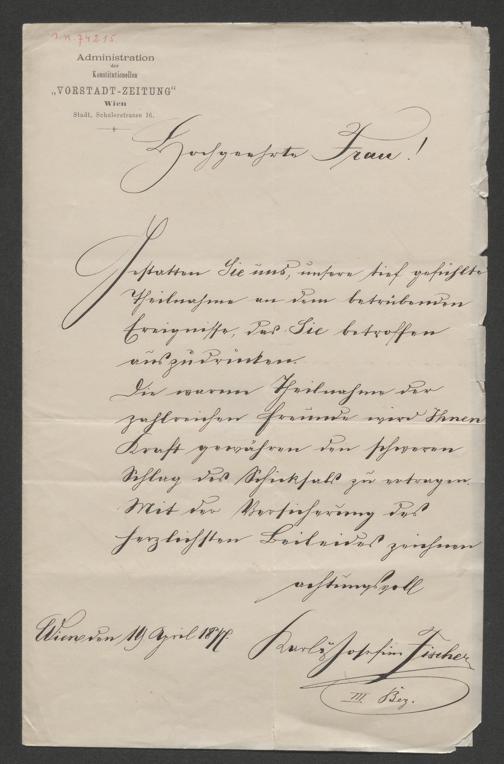 I.N. 74215
Administration
der
Konstitutionellen
„VORSTADT-ZEITUNG“
Wien
Stadt, Schulerstrasse 16.
Hochgeehrte Frau!
Gestatten Sie uns, unsere tief gefühlte
Theilnahme an dem betrübenden
Ereignisse, das Sie betroffen
auszudrücken.
Die warme Theilnahme der
zahlreichen Freunde wird Ihnen
Kraft gewähren den schweren
Schlag des Schicksals zu ertragen.
Mit der Versicherung des
herzlichsten Beileides zeichnen
achtungsvoll
Wien den 19 April 187
Karl & Josefine Fischer
III Bez.